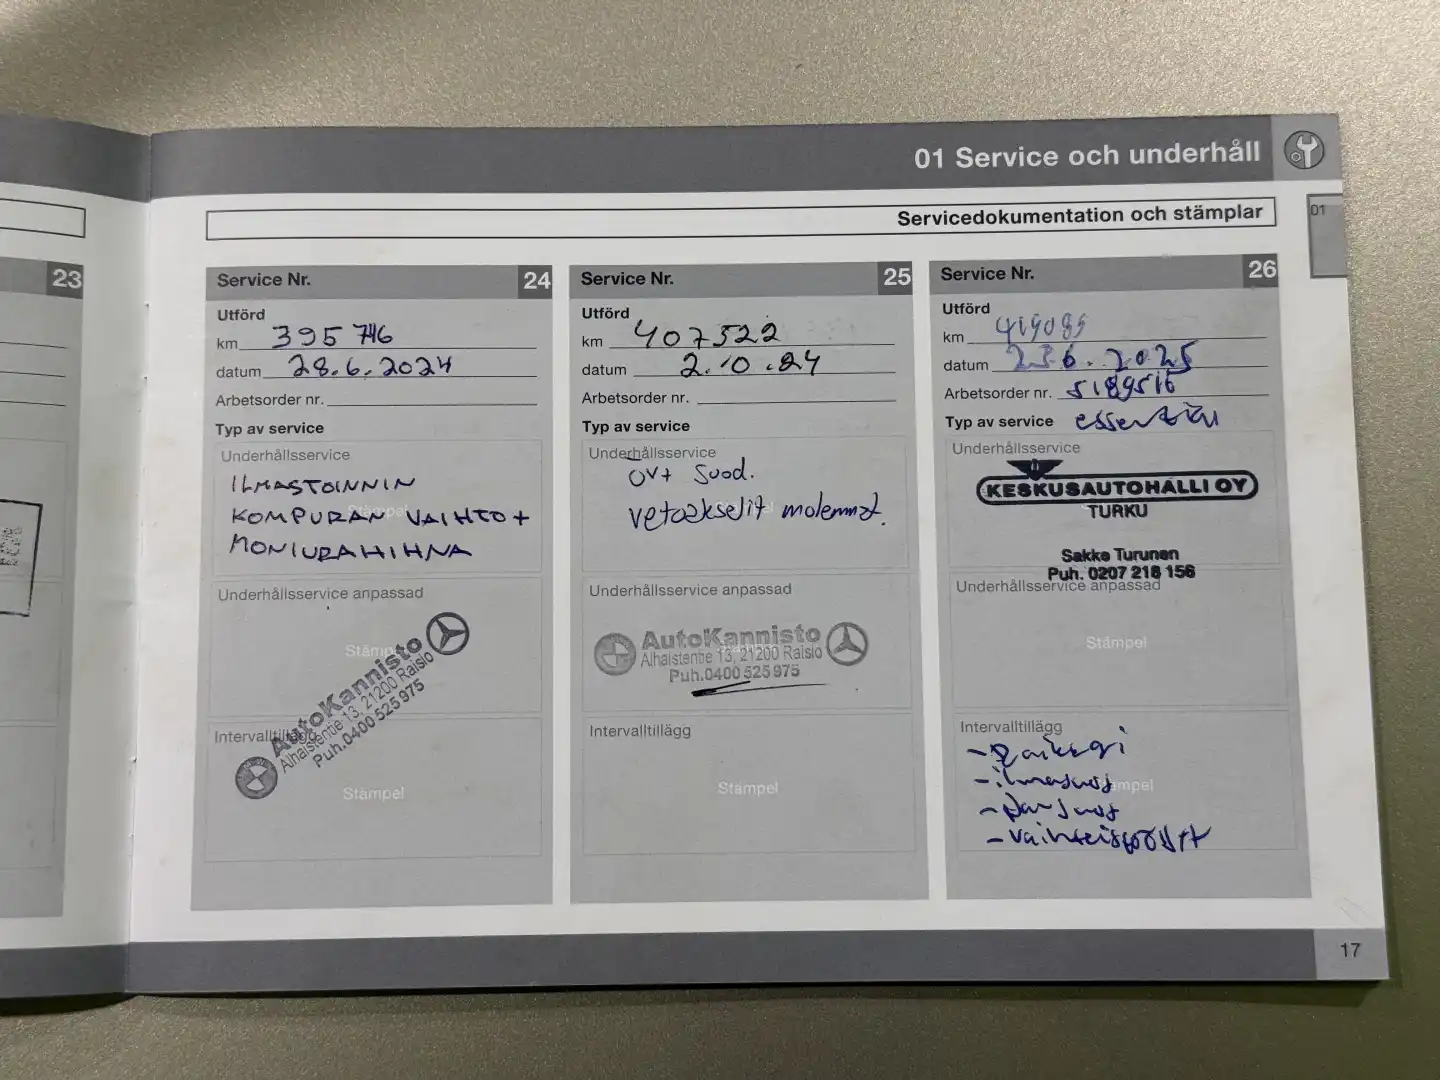 01 Service och underhåll
01
Servicedokumentation och stämplar
23
Service Nr. 24
Utförd
km 395 746
datum 28.6.2024
Arbetsorder nr.
Typ av service
Underhållsservice
ILMASTOINNIN
KOMPURAN VAIHTO +
MONIURAHIHNA
Stämpel
Underhållsservice anpassad
Stämpel
AutoKannisto
Alhaistentie 13, 21200 Raisio
Puh.0400 525 975
Intervalltillägg
Stämpel
Service Nr. 25
Utförd
km 407522
datum 2.10.24
Arbetsorder nr.
Typ av service
Underhållsservice
öv+ suod.
vetoakselit molemmat.
Underhållsservice anpassad
AutoKannisto
Alhaistentie 13, 21200 Raisio
Puh.0400 525 975
Intervalltillägg
Stämpel
Service Nr. 26
Utförd
km
datum 23.6.2025
Arbetsorder nr. 5189516
Typ av service essential
Underhållsservice
KESKUSAUTOHALLI OY
TURKU
Sakke Turunen
Puh. 0207 218 156
Underhållsservice anpassad
Stämpel
Intervalltillägg
- ilmasuod
Stämpel
- vaihteistoöljyt
17